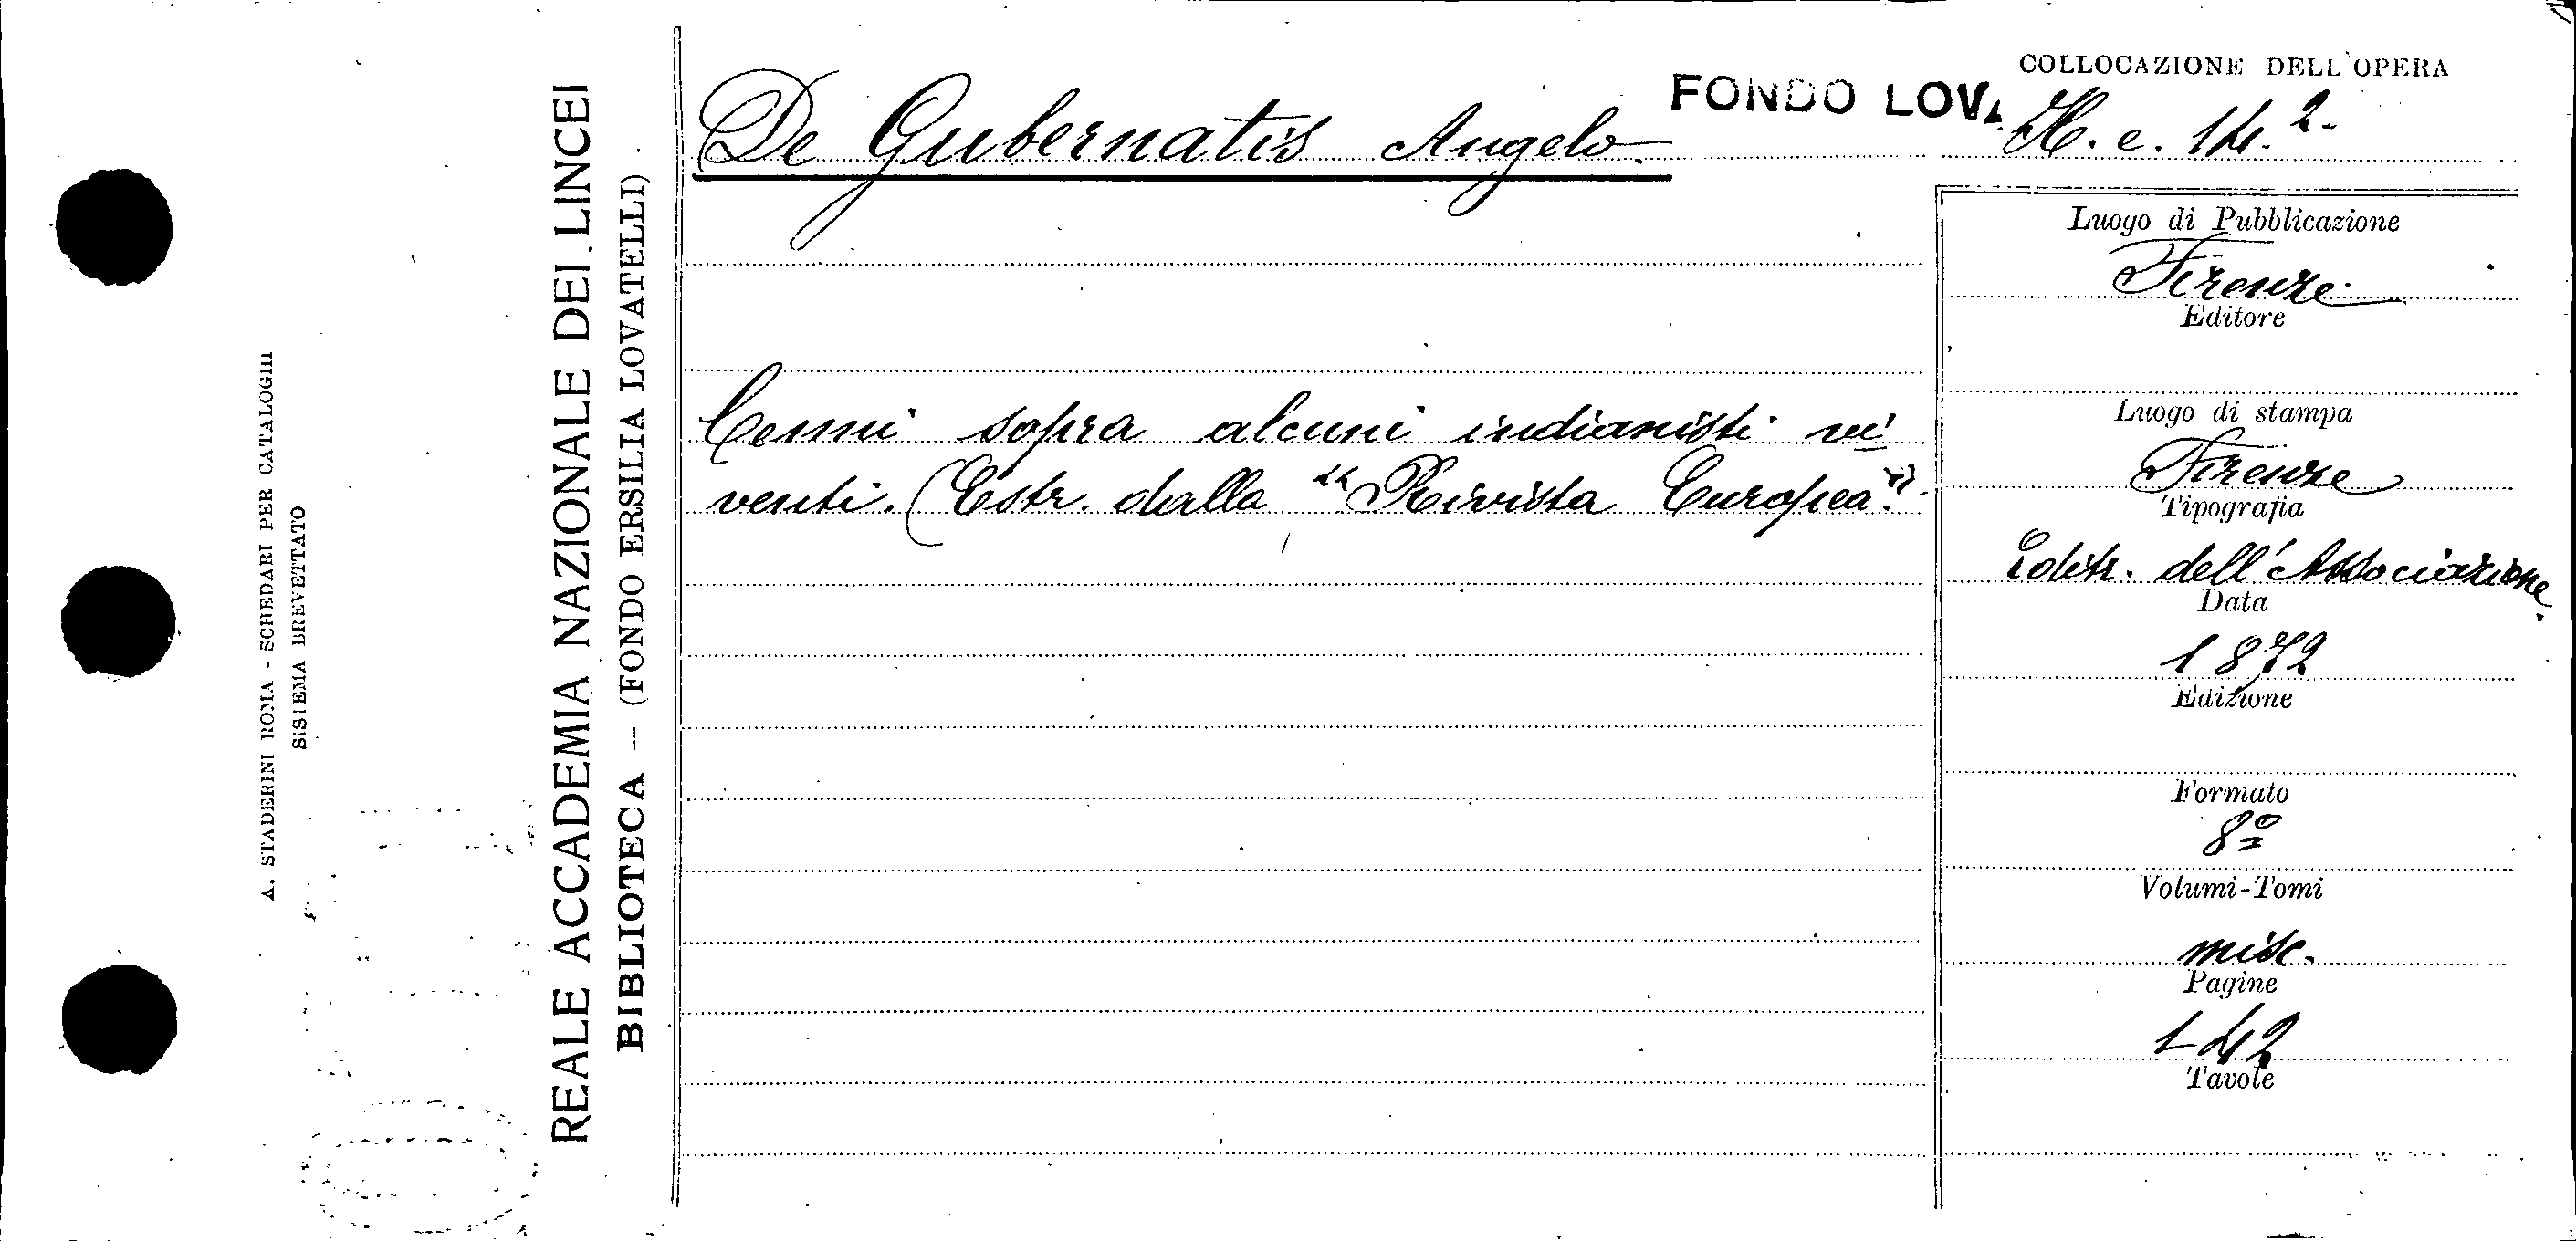 A. STADERINI ROMA - SCHEDARI PER CATALOGHI
SISTEMA BREVETTATO
REALE ACCADEMIA NAZIONALE DEI LINCEI
BIBLIOTECA — (FONDO ERSILIA LOVATELLI)
De Gubernatis Angelo.
FONDO LOV.
Cenni sopra alcuni indianisti vi
venti. (Estr. dalla "Rivista Europea".
COLLOCAZIONE DELL'OPERA
H. e. 14. 2-
Luogo di Pubblicazione
Firenze
Editore
Luogo di stampa
Firenze
Tipografia
Editr. dell'Associazione.
Data
1872
Edizione
Formato
8º
Volumi-Tomi
misc.
Pagine
1-42
Tavole